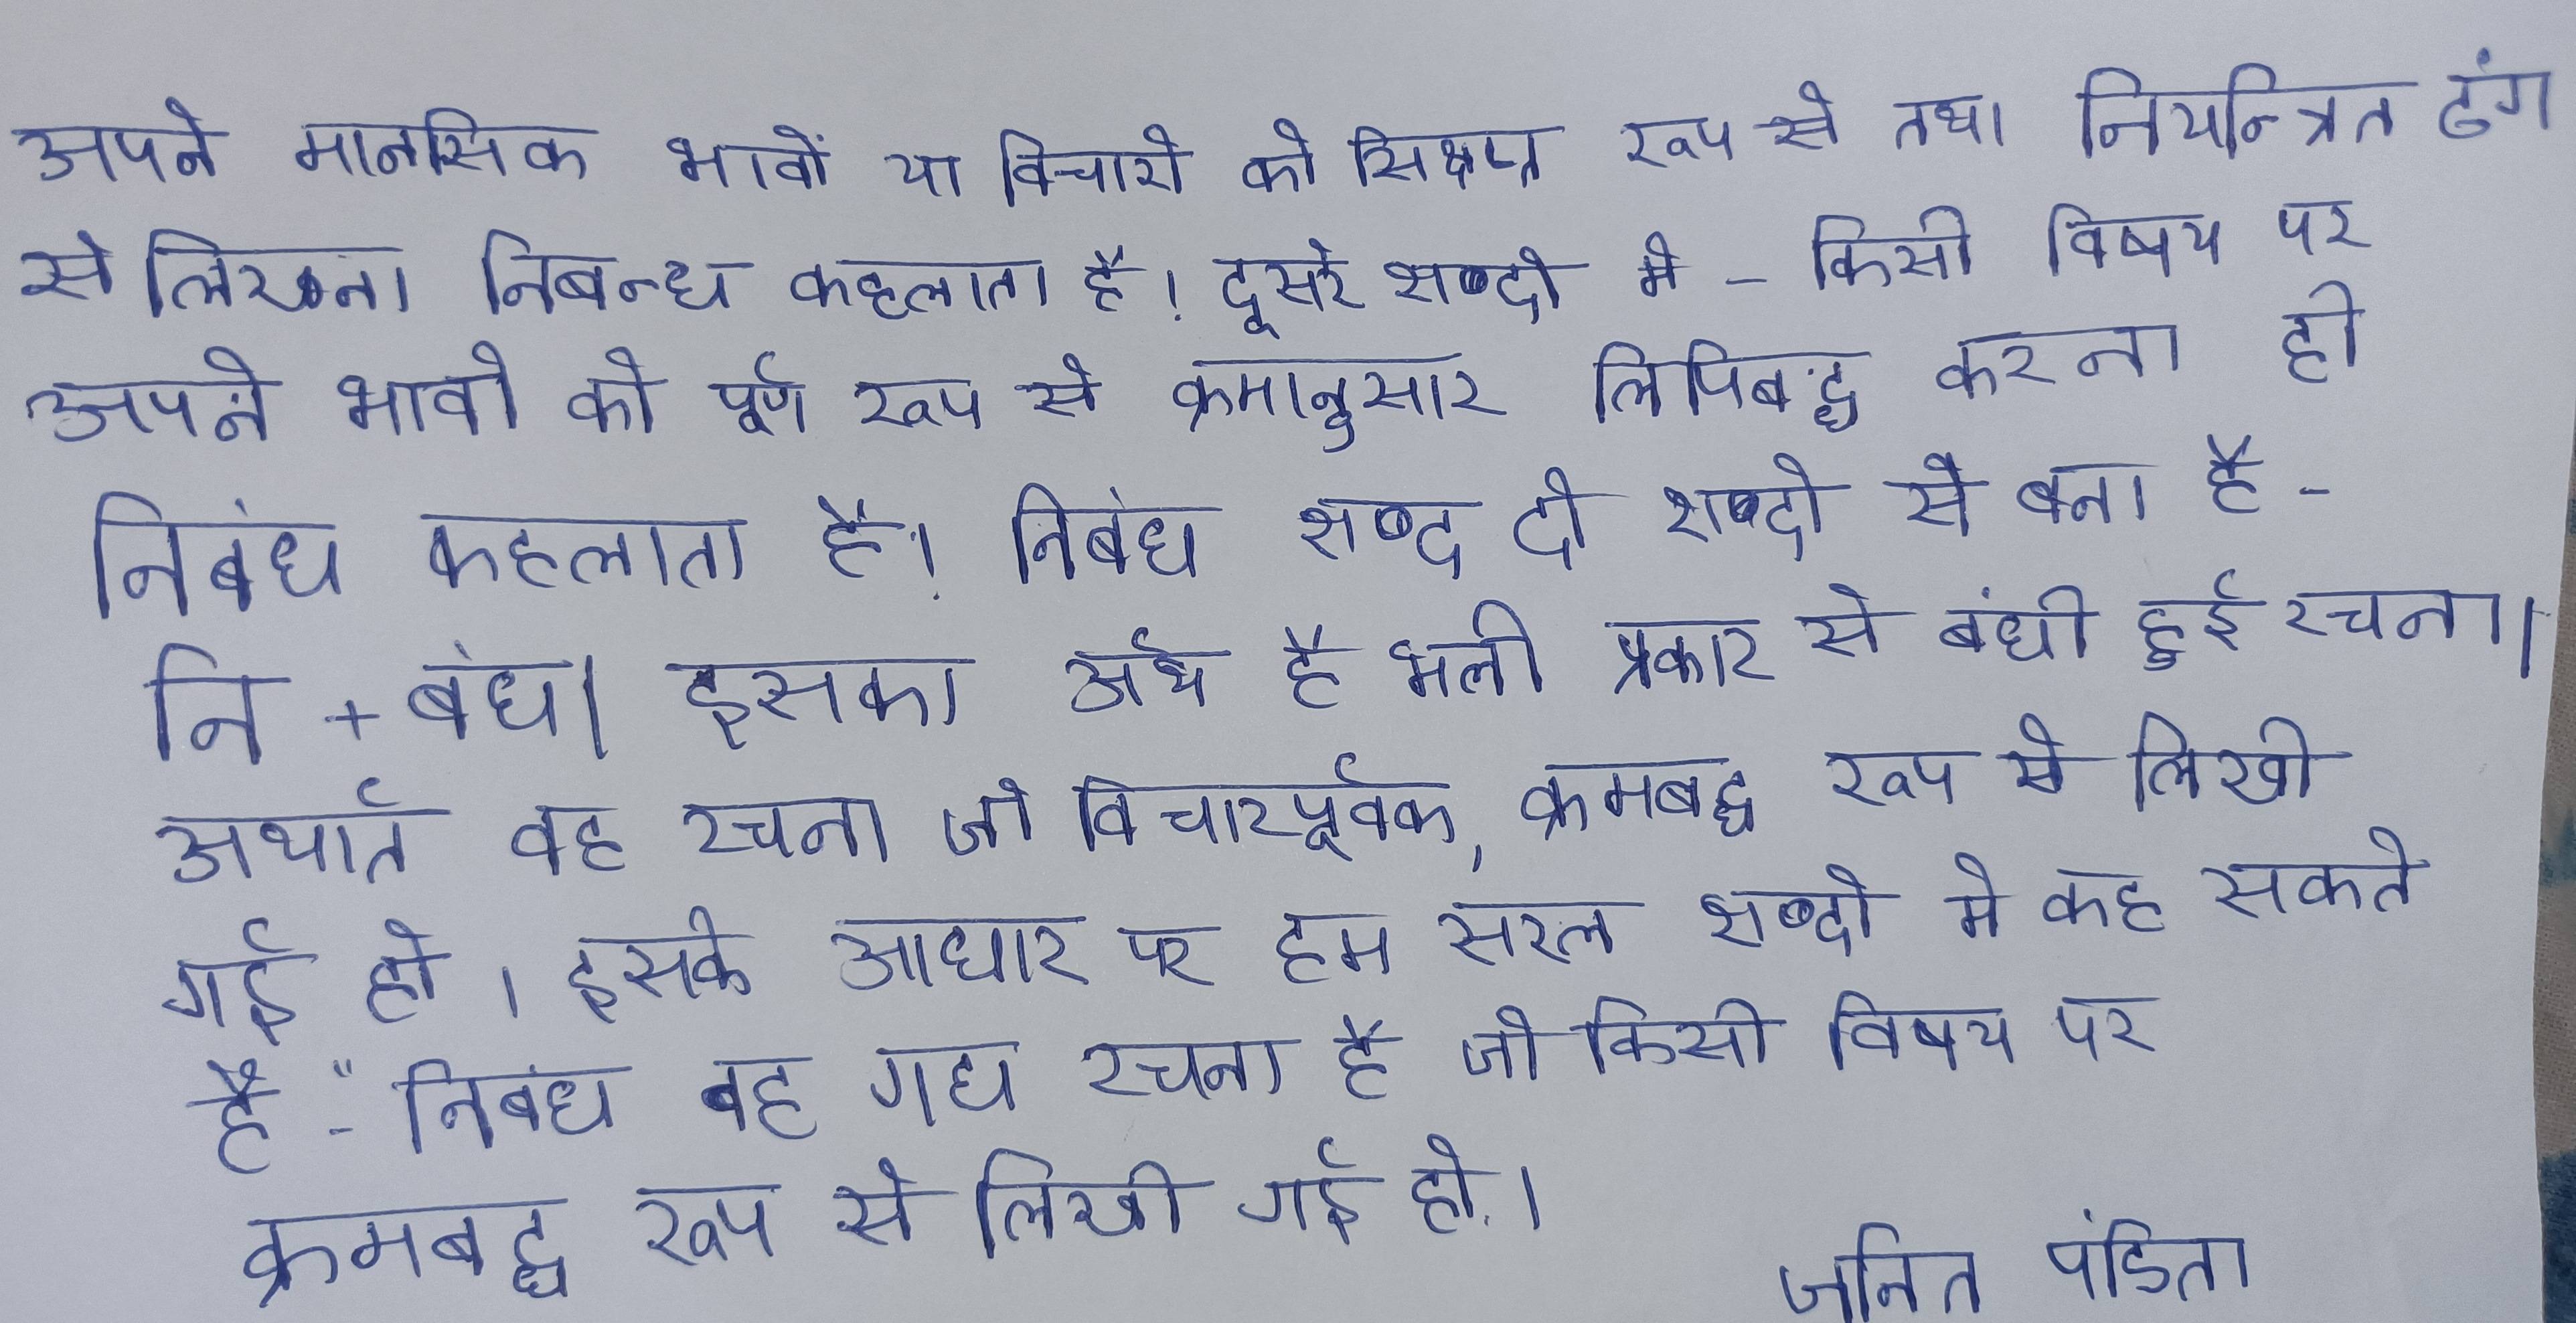 अपने मानसिक भावों या विचारो को सिक्षप्त रूप से तथा नियन्त्रित ढंग
से लिखना निबन्ध कहलाता है। दूसरे शब्दो मे - किसी विषय पर
अपने भावो को पूर्ण रूप से क्रमानुसार लिपिबद्ध करना ही
निबंध कहलाता है। निबंध शब्द दो शब्दो से बना है -
नि + बंध। इसका अर्थ है भली प्रकार से बंधी हुई रचना।
अथार्त वह रचना जो विचारपूर्वक, क्रमबद्ध रूप से लिखी
गई हो। इसके आधार पर हम सरल शब्दो मे कह सकते
है - "निबंध वह गद्य रचना है जो किसी विषय पर
क्रमबद्ध रूप से लिखी गई हो।
जनित पंडिता